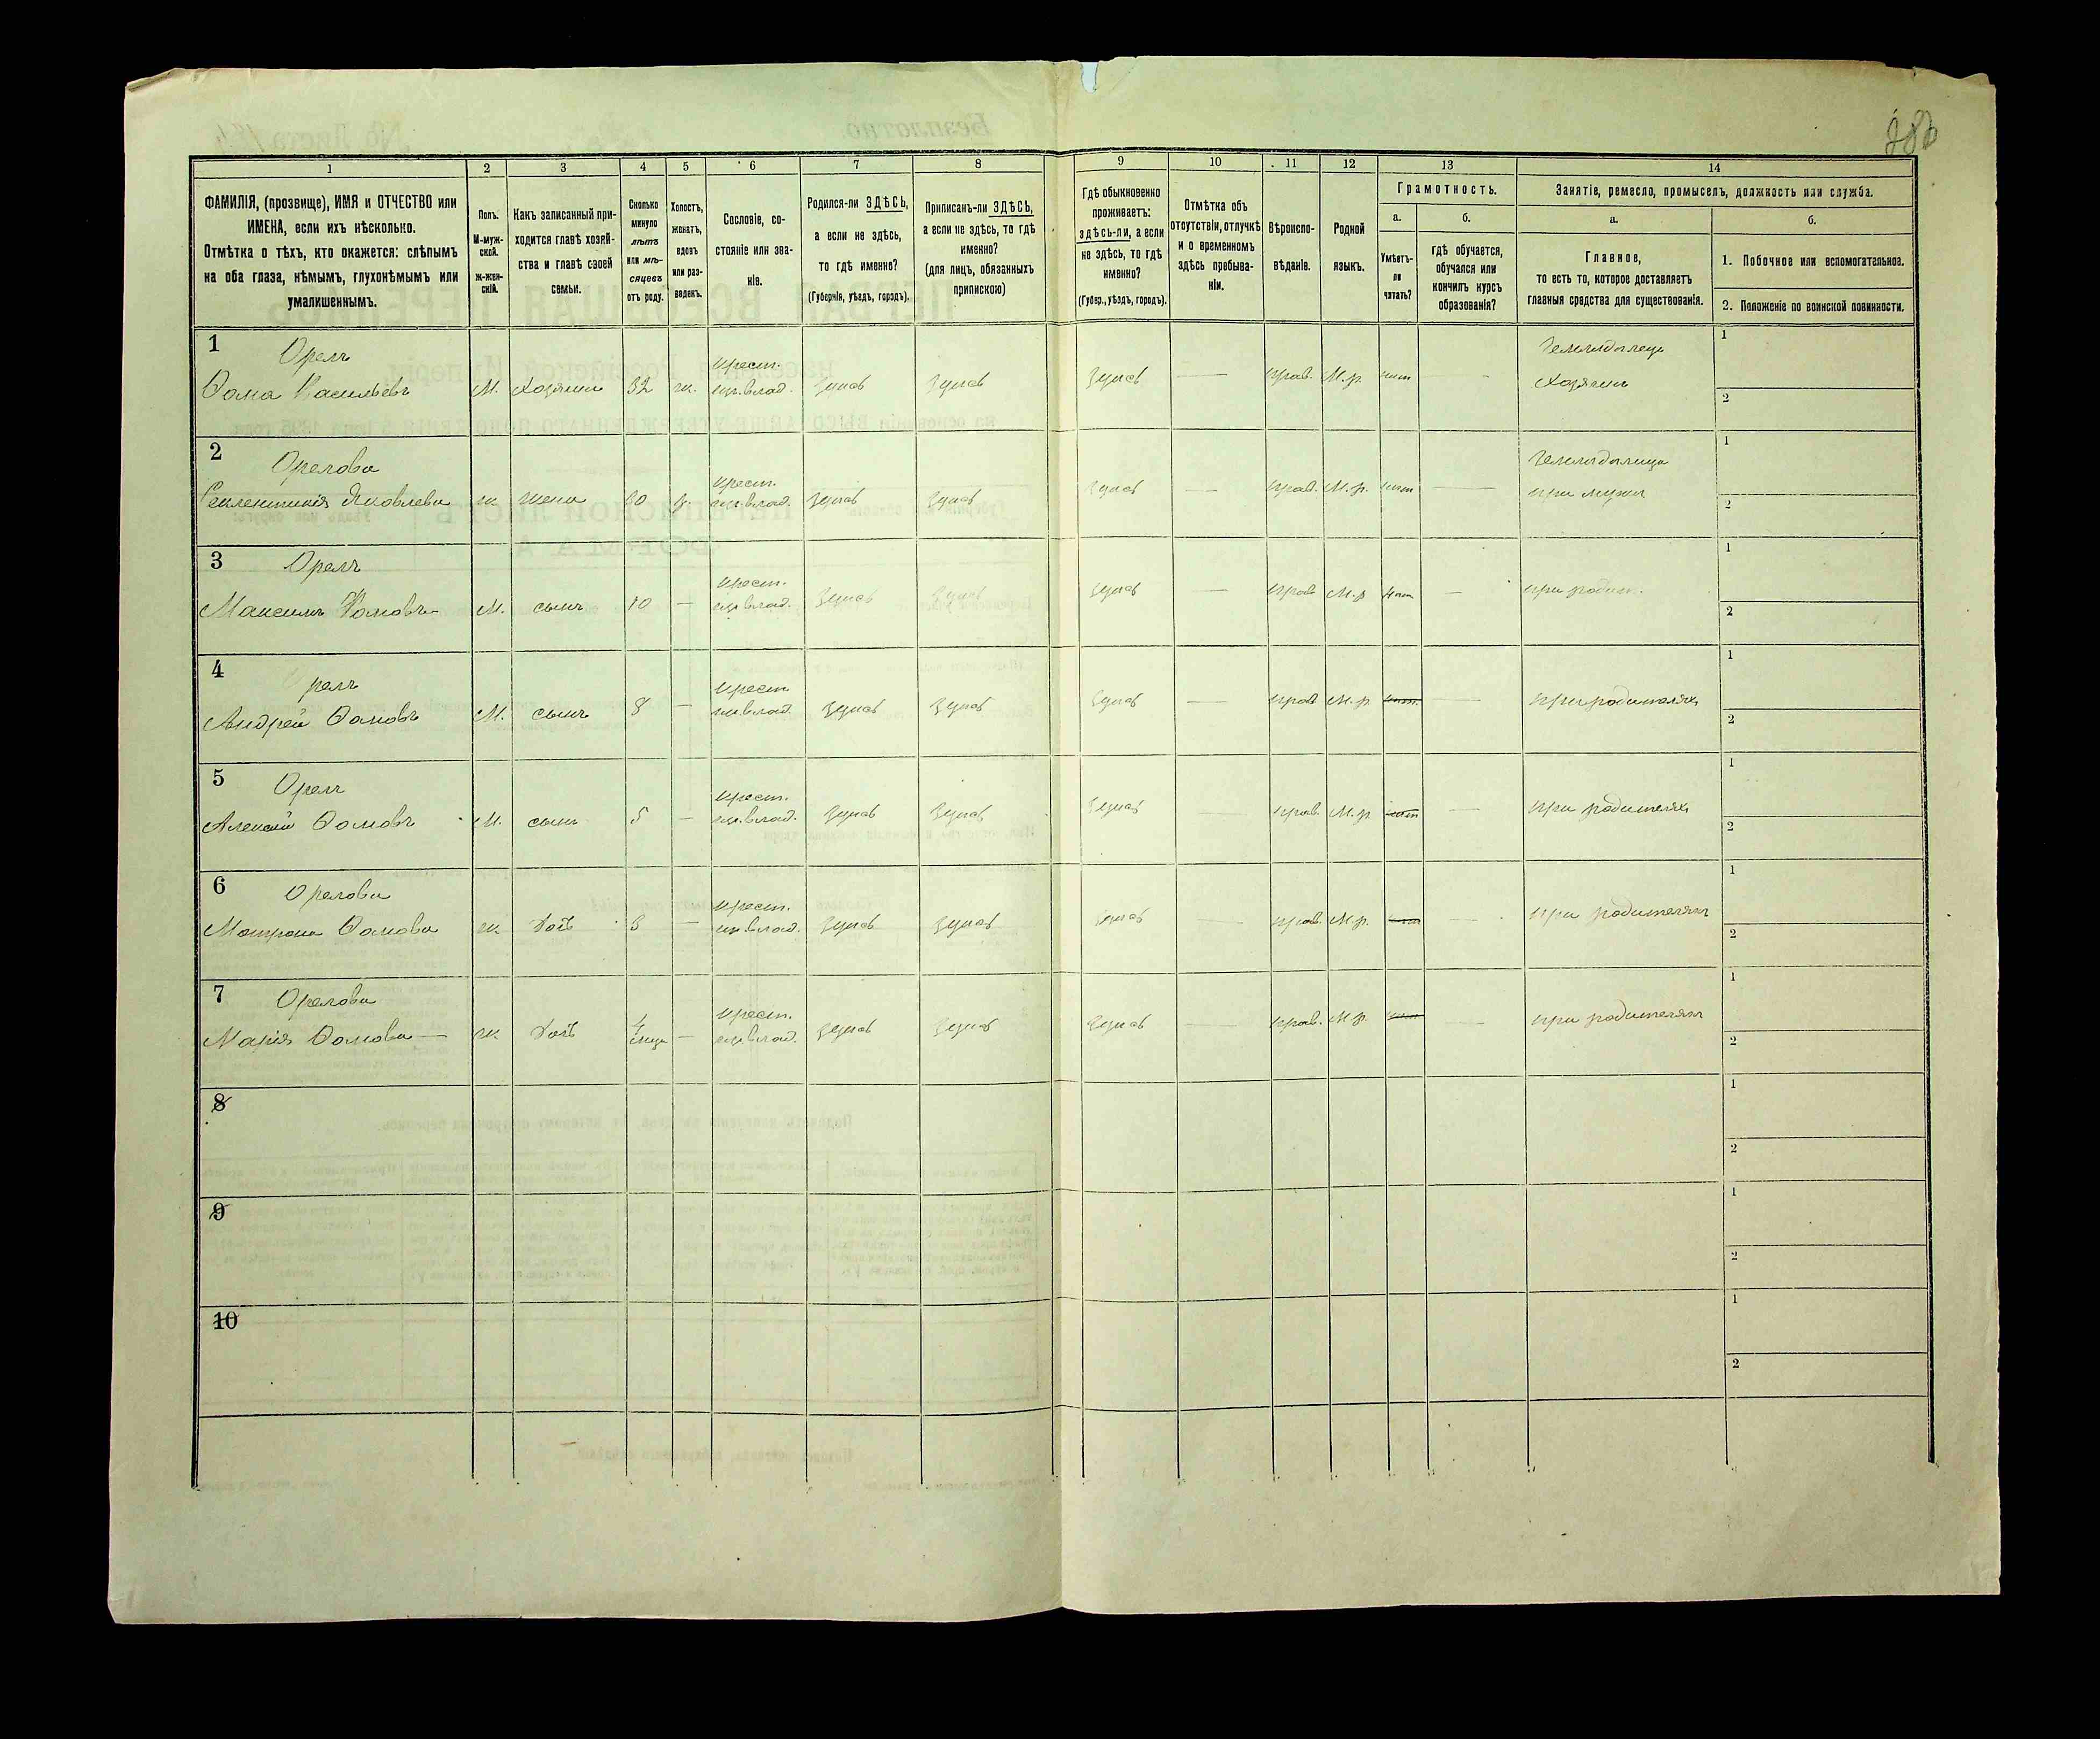 1
2
3
4
5
6
7
8
9
10
11
12
13
14
ФАМИЛІЯ, (прозвище), ИМЯ и ОТЧЕСТВО или
ИМЕНА, если ихъ нѣсколько.
Отмѣтка о тѣхъ, кто окажется: слѣпымъ
на оба глаза, нѣмымъ, глухонѣмымъ или
умалишеннымъ.
Полъ.
М-муж-
ской.
Ж-жен-
скій.
Какъ записанный при-
ходится главѣ хозяй-
ства и главѣ своей
семьи.
Сколько
минуло
лѣтъ
или мѣ-
сяцевъ
отъ роду.
Холостъ,
женатъ,
вдовъ
или раз-
веденъ.
Сословіе, со-
стояніе или зва-
ніе.
Родился-ли ЗДѢСЬ,
а если не здѣсь,
то гдѣ именно?
(Губернія, уѣздъ, городъ).
Приписанъ-ли ЗДѢСЬ,
а если не здѣсь, то гдѣ
именно?
(для лицъ, обязанныхъ
припискою)
Гдѣ обыкновенно
проживаетъ:
здѣсь-ли, а если
не здѣсь, то гдѣ
именно?
(Губер., уѣздъ, городъ).
Отмѣтка объ
отсутствіи, отлучкѣ
и о временномъ
здѣсь пребыва-
ніи.
Вѣроиспо-
вѣданіе.
Родной
языкъ.
Грамотность.
а.
б.
Умѣетъ-
ли
читать?
гдѣ обучается,
обучался или
кончилъ курсъ
образованія?
Занятіе, ремесло, промыселъ, должность или служба.
а.
б.
Главное,
то есть то, которое доставляетъ
главныя средства для существованія.
1. Побочное или вспомогательное.
2. Положеніе по воинской повинности.
1 Орелъ крест. Земледѣлецъ 1
Ѳома Васильевъ М. хозяинъ 32 ж. влад. Здѣсь Здѣсь Здѣсь — прав. М.р. нѣт — хозяинъ
2
2 Орелова крест. Земледѣлица 1
Яковлева ж. жена 30 влад. Здѣсь Здѣсь Здѣсь — прав. М.р. нѣт — при мужѣ
2
3 Орелъ крест. 1
Максимъ Ѳомовъ М. сынъ 10 — влад. Здѣсь Здѣсь Здѣсь — прав М.р нѣт — при родит.
2
4 Орелъ крест 1
Андрей Ѳомовъ М. сынъ 8 — влад. Здѣсь Здѣсь Здѣсь — прав М.р. нѣт — при родителяхъ
2
5 Орелъ крест. 1
Алексѣй Ѳомовъ М. сынъ 5 — влад. Здѣсь Здѣсь Здѣсь — прав. М.р. нѣт — при родителяхъ
2
6 Орелова крест. 1
Матрона Ѳомова ж. дочь 3 — влад. Здѣсь Здѣсь Здѣсь — прав. М.р. нѣт — при родителяхъ
2
7 Орелова крест. 1
Марія Ѳомова — ж. дочь — влад. Здѣсь Здѣсь Здѣсь — прав. М.р. нѣт — при родителяхъ
2
8 1
2
9 1
2
10 1
2